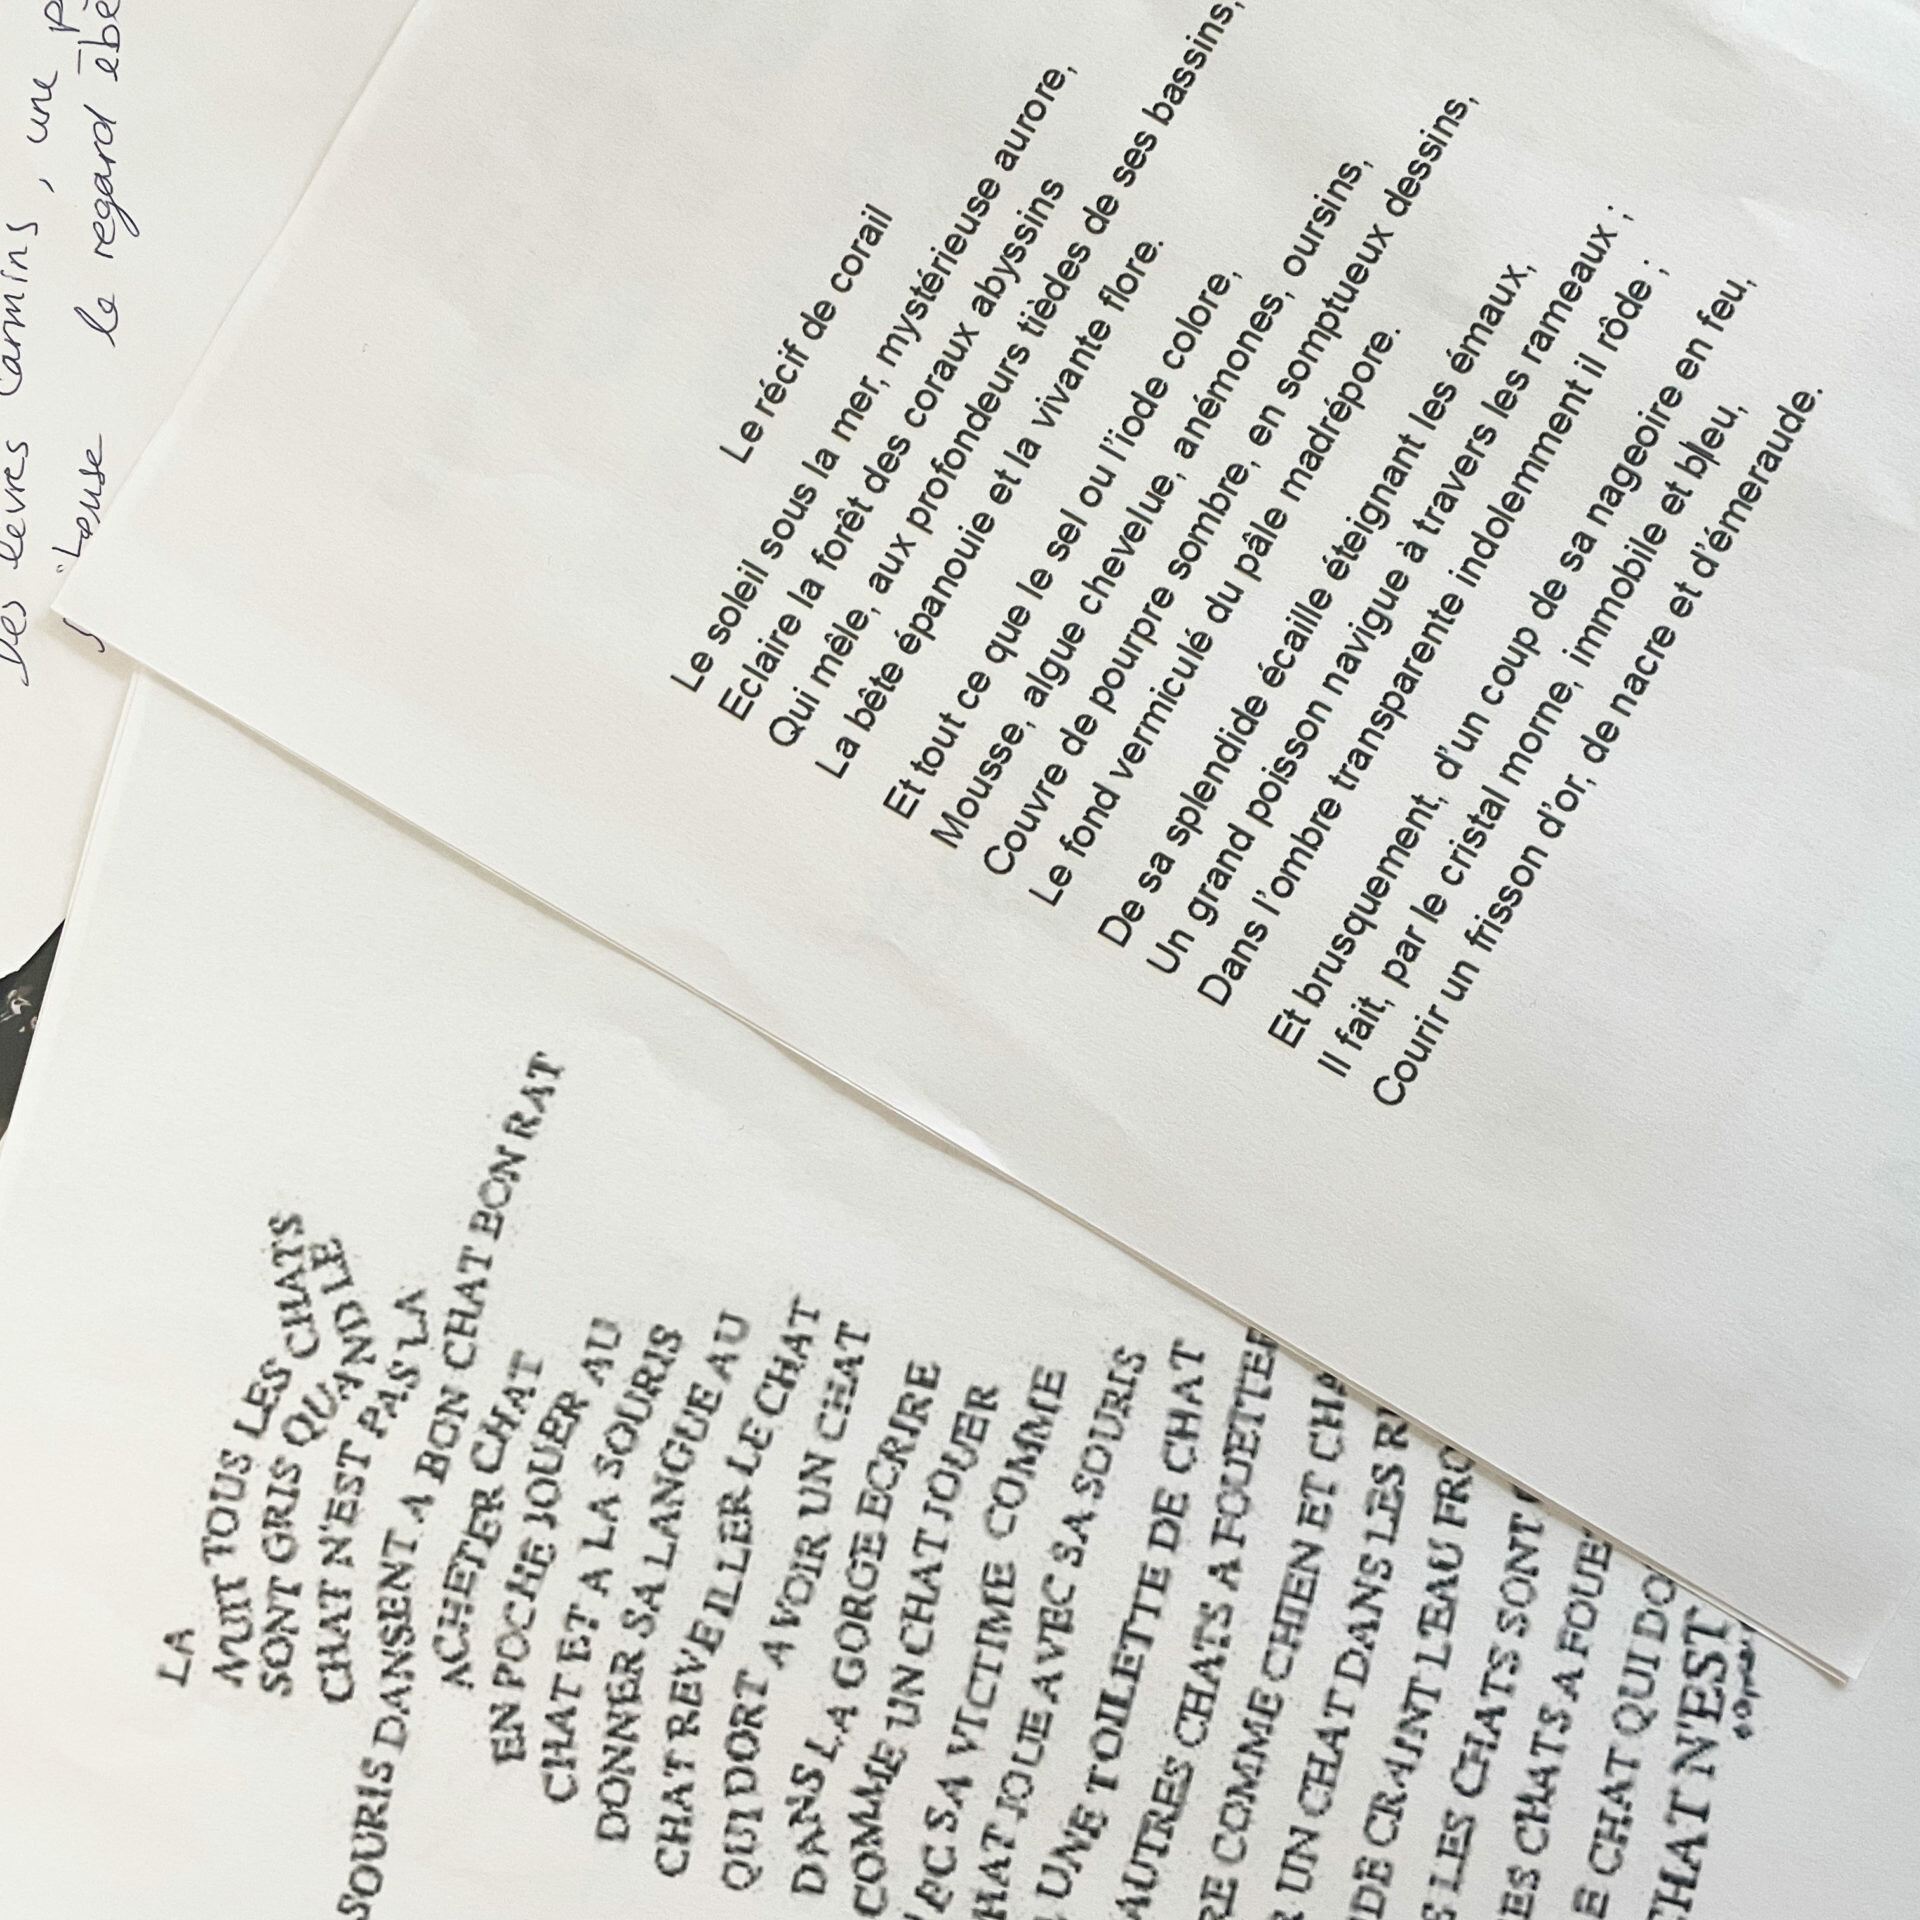 Des lèvres carmins, une
"Louse le regard
Le récif de corail
Le soleil sous la mer, mystérieuse aurore,
Eclaire la forêt des coraux abyssins
Qui mêle, aux profondeurs tièdes de ses bassins,
La bête épanouie et la vivante flore.
Et tout ce que le sel ou l'iode colore,
Mousse, algue chevelue, anémones, oursins,
Couvre de pourpre sombre, en somptueux dessins,
Le fond vermiculé du pâle madrépore.
De sa splendide écaille éteignant les émaux,
Un grand poisson navigue à travers les rameaux ;
Dans l'ombre transparente indolemment il rôde ;
Et brusquement, d'un coup de sa nageoire en feu,
Il fait, par le cristal morne, immobile et bleu,
Courir un frisson d'or, de nacre et d'émeraude.
LA
NUIT TOUS LES CHATS
SONT GRIS QUAND LE
CHAT N'EST PAS LA
SOURIS DANSENT A BON CHAT BON RAT
ACHETER CHAT
EN POCHE JOUER AU
CHAT ET A LA SOURIS
DONNER SA LANGUE AU
CHAT REVEILLER LE CHAT
QUI DORT AVOIR UN CHAT
DANS LA GORGE ECRIRE
COMME UN CHAT JOUER
SA VICTIME COMME
JOUE AVEC SA SOURIS
UNE TOILETTE DE CHAT
AUTRES CHATS A FOUETTER
COMME CHIEN ET
UN CHAT DANS LES
CRAINT L'EAU
LES CHATS SONT
CHATS A
CHAT QUI
N'EST